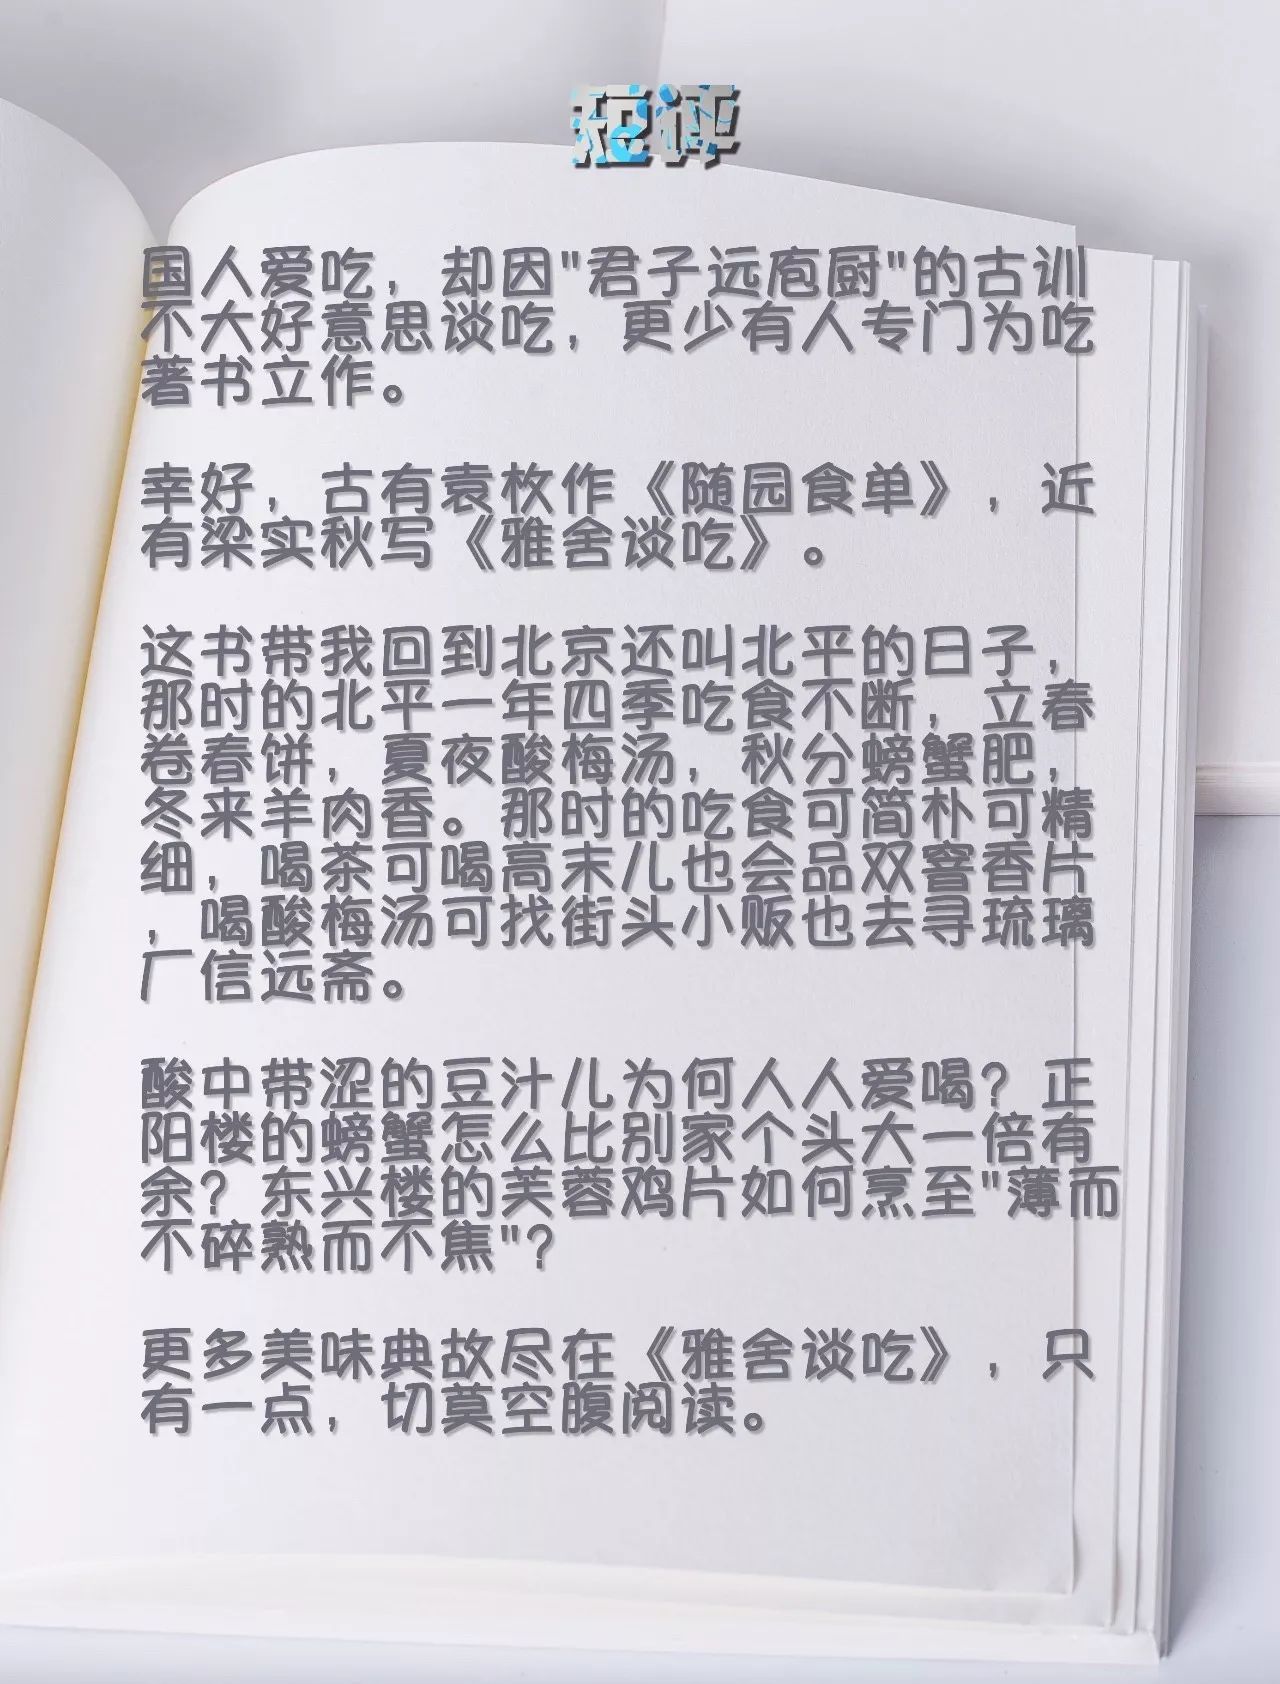 短评
国人爱吃，却因"君子远庖厨"的古训
不大好意思谈吃，更少有人专门为吃
著书立作。
幸好，古有袁枚作《随园食单》，近
有梁实秋写《雅舍谈吃》。
这书带我回到北京还叫北平的日子，
那时的北平一年四季吃食不断，立春
卷春饼，夏夜酸梅汤，秋分螃蟹肥，
冬来羊肉香。那时的吃食可简朴可精
细，喝茶可喝高末儿也会品双窨香片
，喝酸梅汤可找街头小贩也去寻琉璃
厂信远斋。
酸中带涩的豆汁儿为何人人爱喝？正
阳楼的螃蟹怎么比别家个头大一倍有
余？东兴楼的芙蓉鸡片如何烹至"薄而
不碎熟而不焦"？
更多美味典故尽在《雅舍谈吃》，只
有一点，切莫空腹阅读。